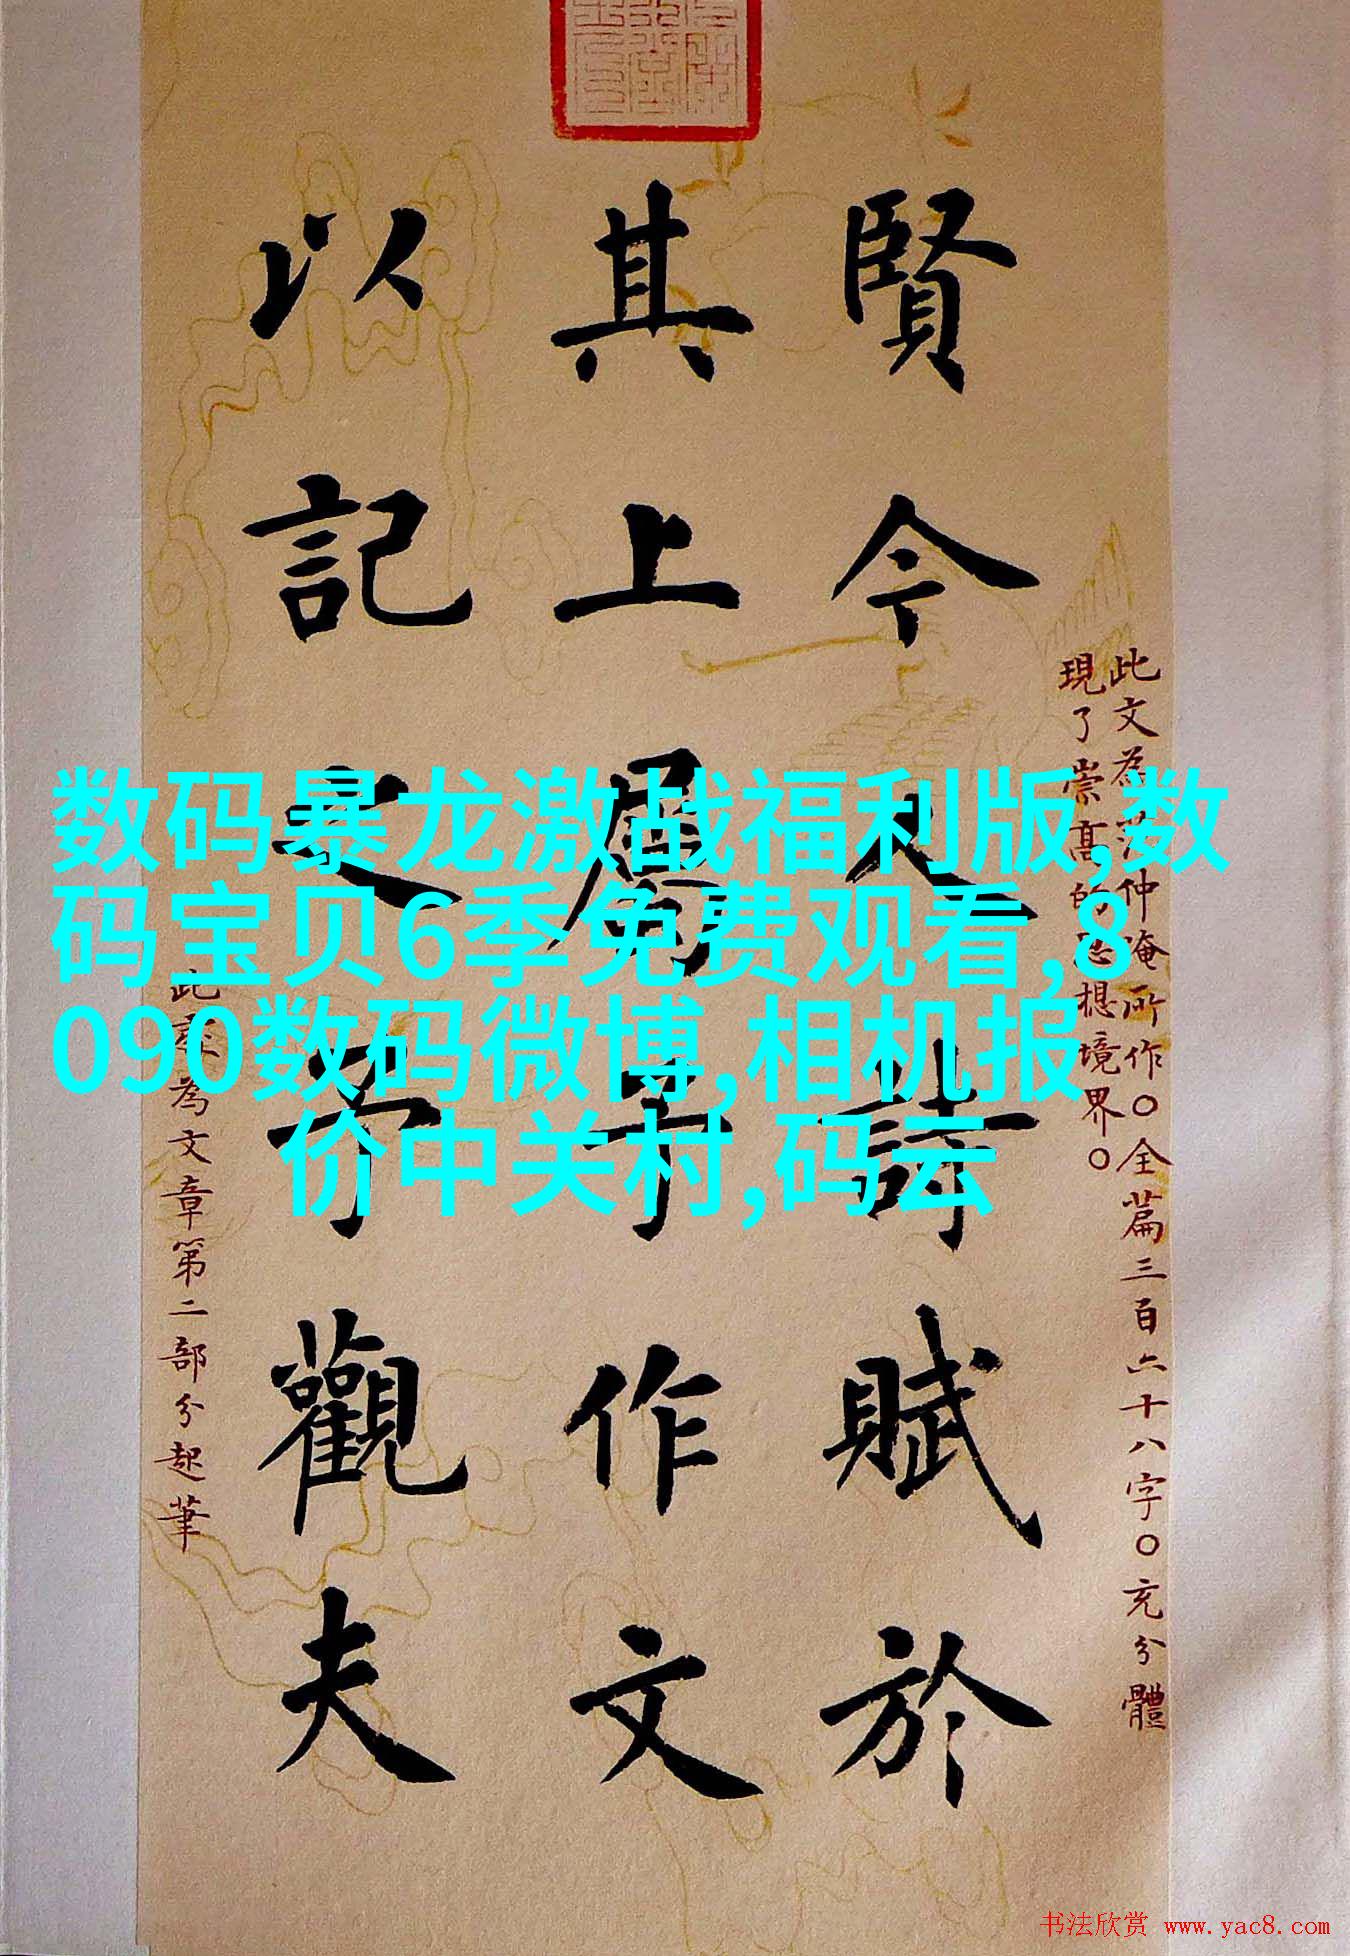 此文為范仲淹所作〇全篇三百六十八字〇充分體
現了崇高的思想境界〇
賢今人詩賦於
其上屬予作文
以記之予觀夫
此為文章第二部分起筆
数码暴龙激战福利版,数
码宝贝6季免费观看,8
090数码微博,相机报
价中关村,码云
书法欣赏 www.yac8.com